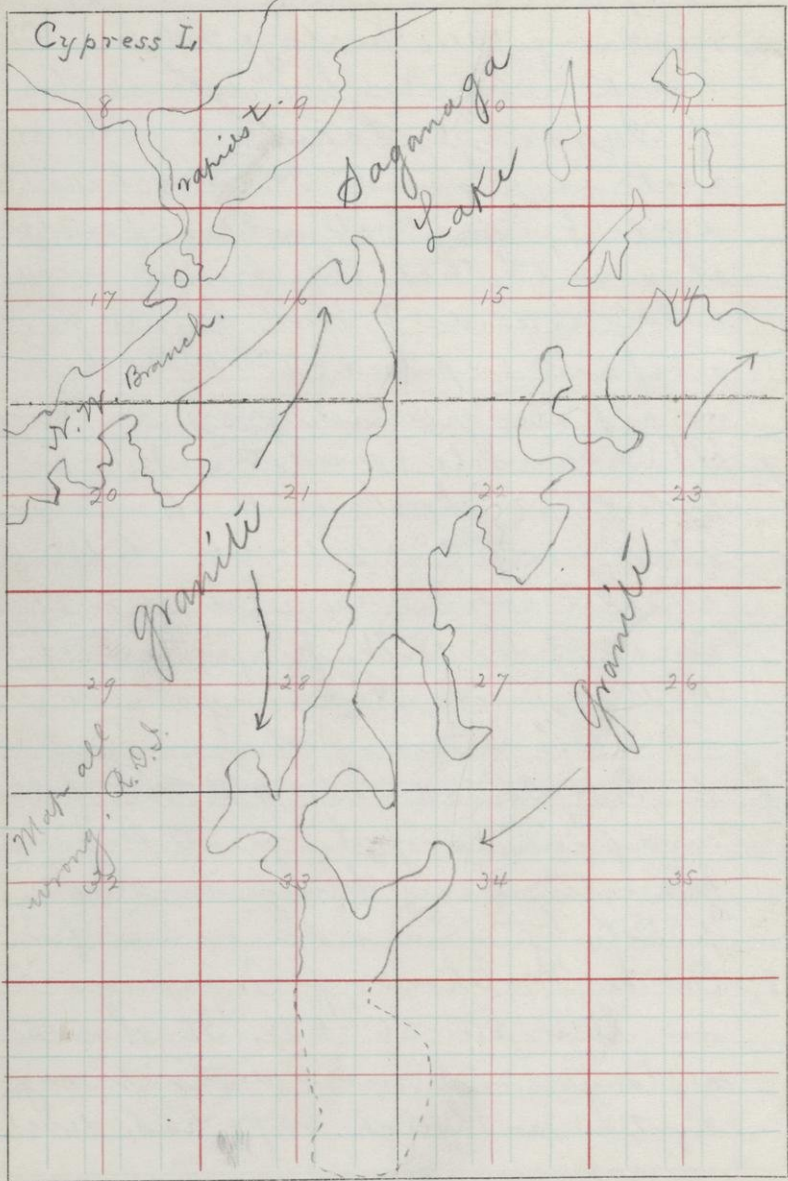 Cypress L
8
9
10
11
rapids
Saganaga
Lake
17
16
15
14
N.W. Branch.
20
21
22
23
granite
granite
29
28
27
26
Map all
wrong.
32
33
34
35